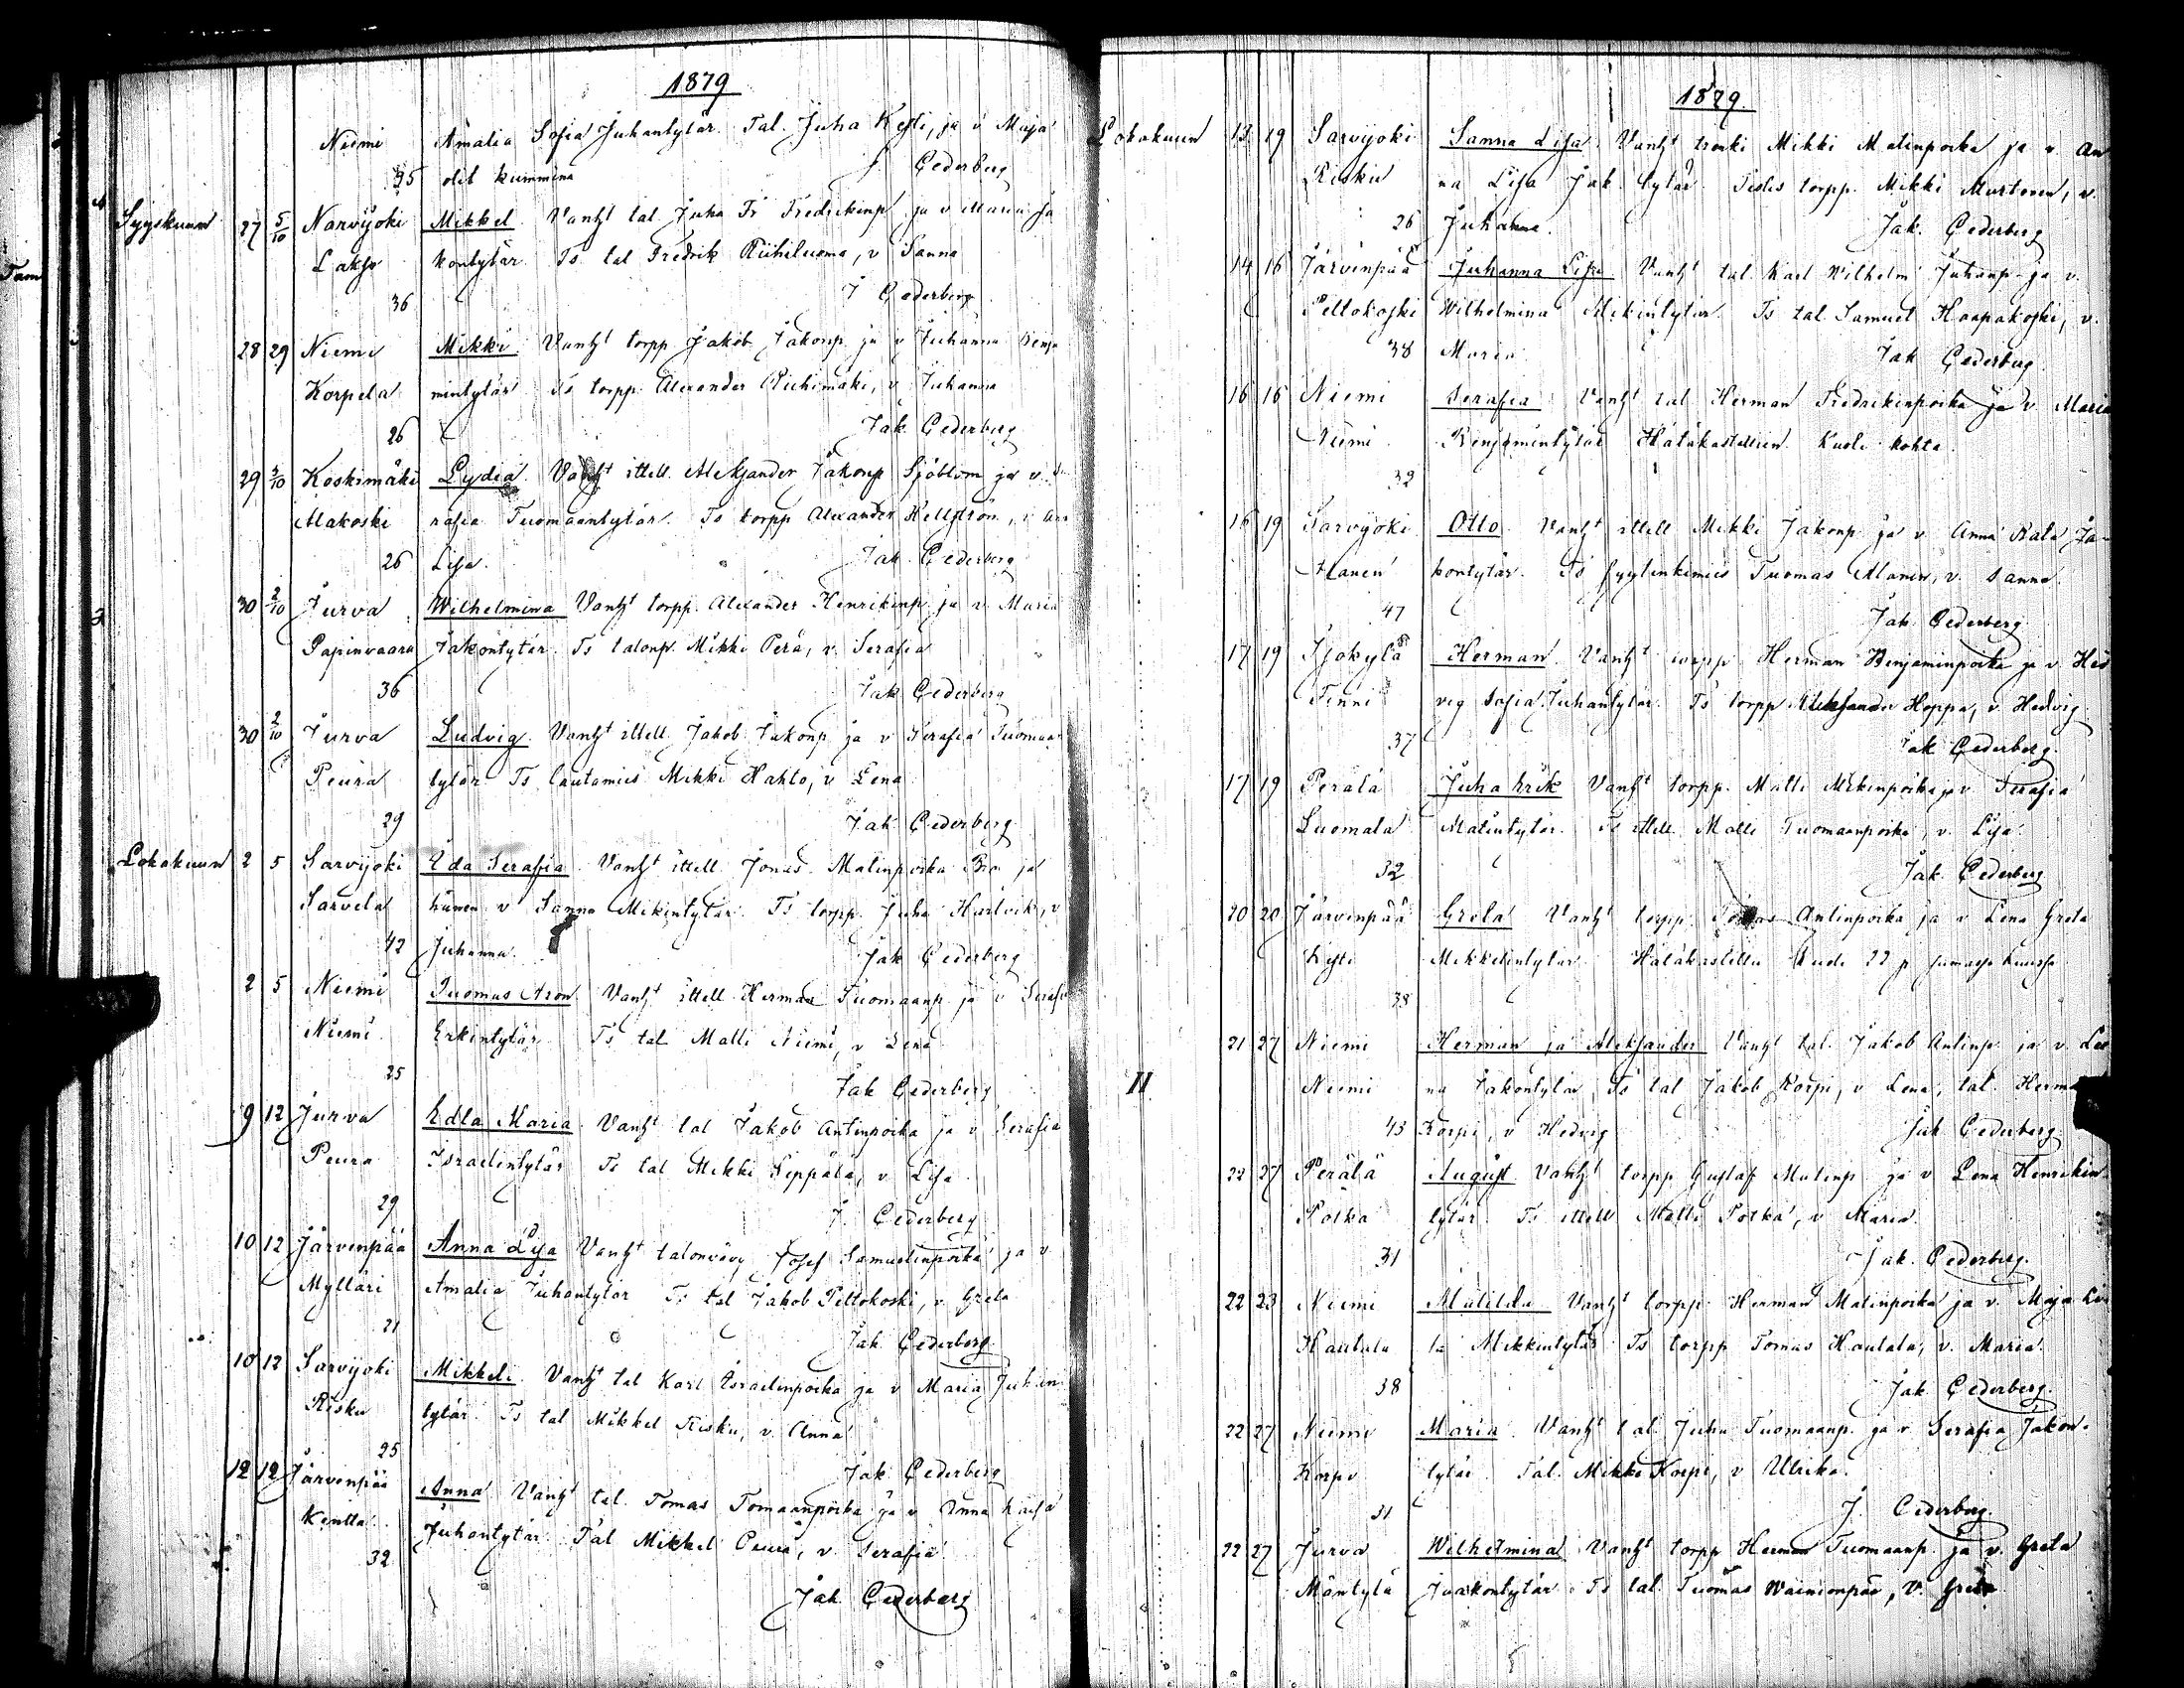 1879
Niemi Amalia Sofia Juhantytär. Tal. Juha Kesti, ja v Maja
35 olit kummina J. Cederberg
Syyskuun 27 5/10 Narvijoki Mikkel. Vanht tal. Juha Fr Fredrikinp ja v Maria Ja
Lakso kontytär Ts tal Fredrik Riihiluoma, v Sanna
36 J Cederberg
28 29 Niemi Mikki. Vanht torpp Jakob Jakonp ja v Juhanna Benja
Korpela mintytär Ts torpp. Alexander Riihimäki, v Juhanna
26 Jak Cederberg
29 5/10 Koskimäki Lydia. Vanht ittell. Aleksander Jakonp Sjöblom ja v. Se
Alakoski rafia Tuomaantytär. Ts torpp Alexander Hellström, v Ann
26 Lisa. Jak. Cederberg
30 2/10 Jurva Wilhelmina Vanht torpp. Alexander Henrikinp ja v. Maria
Papinvaara Jakontytär. Ts talonp. Mikki Perä, v. Serafia
36 Jak Cederberg
30 2/10 Jurva Ludvig. Vanht ittell. Jakob Jakonp ja v Serafia Tuomaan
Peura tytär Ts lautamies Mikki Hahto, v Lena
29 Jak. Cederberg
Lokakuun 2 5 Sarvijoki Eda Serafia. Vanht ittell. Jonas Matinpoika Bro ja
Sarvela hänen v Sanna Mikintytär. Ts torpp. Juha Hartvik, v
42 Juhanna. Jak Cederberg
2 5 Niemi Tuomas Aron. Vanht ittell. Herman Tuomaanp ja v Serafia
Niemi Erkintytär Ts tal Matti Niemi, v Lena
25 Jak Cederberg
9 12 Jurva Edla Maria. Vanht tal Jakob Antinpoika ja v Serafia
Peura Israelintytär Ts tal Mikki Seppälä, v Lisa
29 J. Cederberg
10 12 Järvenpää Anna Lisa Vanht talonvävy Josef Samuelinpoika ja v
Myllari Amalia Juhantytär Ts tal Jakob Peltokoski, v. Greta
21 Jak Cederberg
10 12 Sarvijoki Mikkeli. Vanht tal Karl Israelinpoika ja v Maria Juhan
Risku tytär. Ts tal Mikkel Risku, v. Anna
25 Jak. Cederberg
12 12 Järvenpää Anna Vanht tal. Tomas Tomaanpoika ja v Anna Kaisa
Kentta Juhantytär. Tal Mikkel Peura, v. Serafia
32
Jak. Cederberg
1879.
Lokakuun 13 19 Sarvijoki Sanna Lisa. Vanht Mikki Matinpoika ja v An
Risku na Lisa Jak. tytär. torpp. Mikki Murtonen, v.
26 Juhanna. Jak. Cederberg
14 16 Järvenpää Juhanna Lisa Vanht tal Karl Wilhelm Juhanp ja v.
Peltokoski Wilhelmina Mikintytär. Ts tal Samuel Haapakoski, v.
38 Maria Jak Cederberg
16 16 Niemi Serafia Vanht tal Herman Fredrikinpoika ja v Maria
Niemi Benjamintytär Hätäkastettiin Kuoli kohta
32
16 19 Sarvijoki Otto. Vanht ittell Mikki Jakonp ja v Anna Kata Ja-
Alanen kontytär. Ts syytinkimies Tuomas Alanen, v. Sanna.
47 Jak Cederberg
17 19 Isokylä Herman. Vanht torpp Herman Benjaminpoika ja v Hed
Finni vig Sofia Juhantytär. Ts torpp Aleksander Hoppa, v. Hedvig.
37 Jak Cederberg
17 19 Perälä Juha Erik Vanht torpp. Matti Mikinpoika ja v. Serafia
Luomala Matintytär. Ts ittell. Matti Tuomaanpoika, v. Lisa.
32 Jak. Cederberg
20 20 Järvenpää Greta Vanht torpp. Tomas Antinpoika ja v Lena Greta
Kesti Mikkelintytär Hätäkastettu Kuoli 22 p samassa kuussa.
38
21 27 Niemi Herman ja Aleksander Vanht tal. Jakob Antinp ja v. Lee
II Niemi na Jakontytär, Ts tal Jakob Korpi, v Lena, tal. Herma
43 Korpi, v Hedvig Jak Cederberg
22 27 Perälä August. Vanht torpp Gustaf Matinp ja v Lena Henrikin-
Potka tytär. Ts ittell Matti Potka, v Maria
31 Jak. Cederberg.
22 23 Niemi Matilda Vanht torpp. Herman Matinpoika ja v. Maja Lii
Hautala sa Mikkintytär Ts torpp Tomas Hautala, v. Maria.
38 Jak. Cederberg.
22 27 Niemi Maria. Vanht tal. Juha Tuomaanp. ja v Serafia Jakon-
Korpi tytär. Tal. Mikki Korpi, v Ulrika.
31 J. Cederberg.
22 27 Jurva Wilhelmina Vanht torpp Herman Tuomaanp. ja v. Greta
Mäntylä Jaakontytär Ts tal. Tuomas Wainionpää, v. Greta